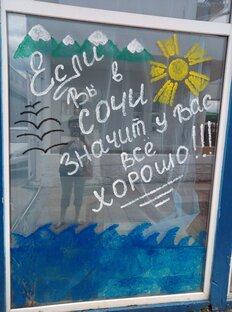 Если
Вы в
СОЧИ
ЗНАЧИТ У ВАС
ВСЕ
ХОРОШО!!!